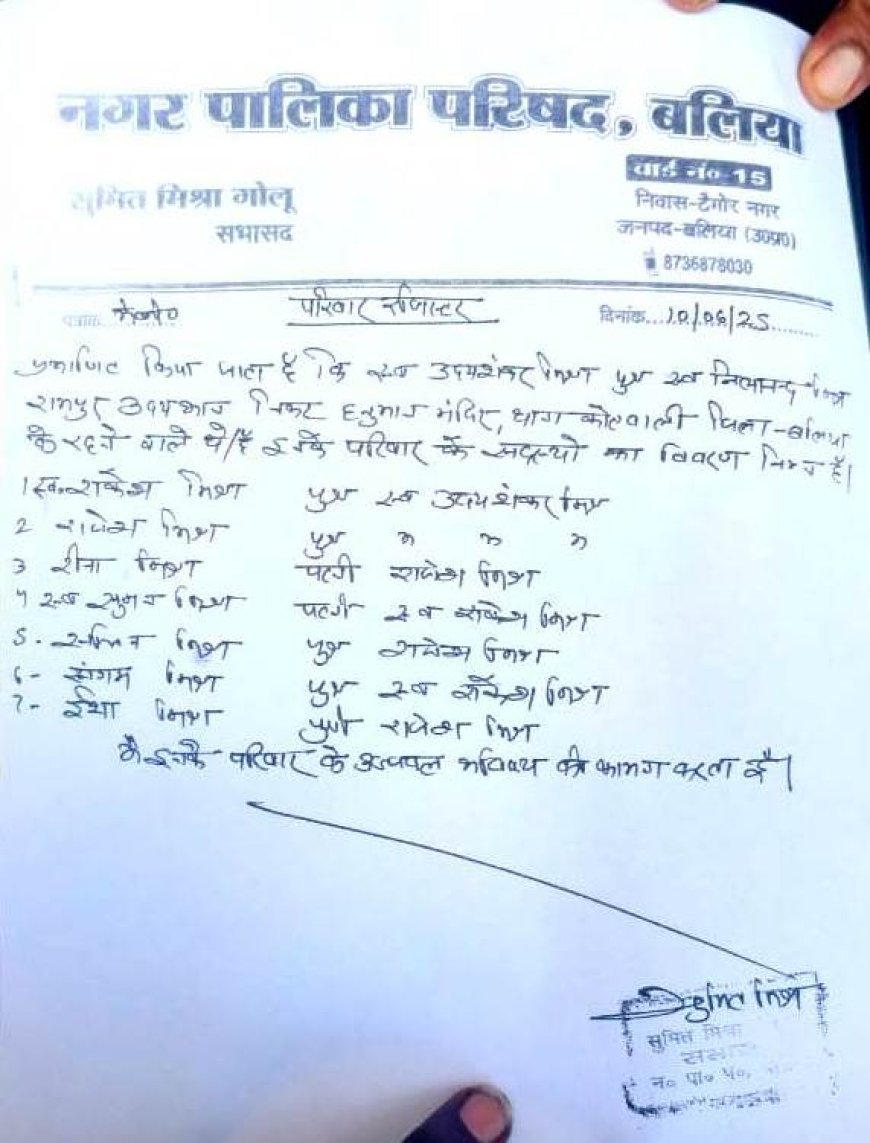 नगर पालिका परिषद, बलिया
वार्ड नं० 15
सुमित मिश्रा गोलू
सभासद
निवास-टैगोर नगर
जनपद-बलिया (उ०प्र०)
8736878030
पत्रांक मेमो० परिवार रजिस्टर दिनांक...10/06/25.........
प्रमाणित किया जाता है कि स्व उदयशंकर मिश्रा पुत्र स्व नित्यानन्द मिश्र
रामपुर उदयभान निकट हनुमान मंदिर, थाना कोतवाली जिला-बलिया
के रहने वाले थे/हैं इनके परिवार के सदस्यो का विवरण निम्न है।
1 स्व. राकेश मिश्रा पुत्र स्व उदयशंकर मिश्र
2 राजेश मिश्रा पुत्र " " "
3 रीना मिश्रा पत्नी राजेश मिश्रा
4 स्व सुमन मिश्रा पत्नी स्व राकेश मिश्रा
5- मिश्रा पुत्र राजेश मिश्रा
6- संगम मिश्रा पुत्र स्व राकेश मिश्रा
7- ईशा मिश्रा पुत्री राजेश मिश्रा
मै इनके परिवार के उज्जवल भविष्य की कामना करता हूँ।
सुमित मिश्र
सुमित मिश्रा
न० पा० प०